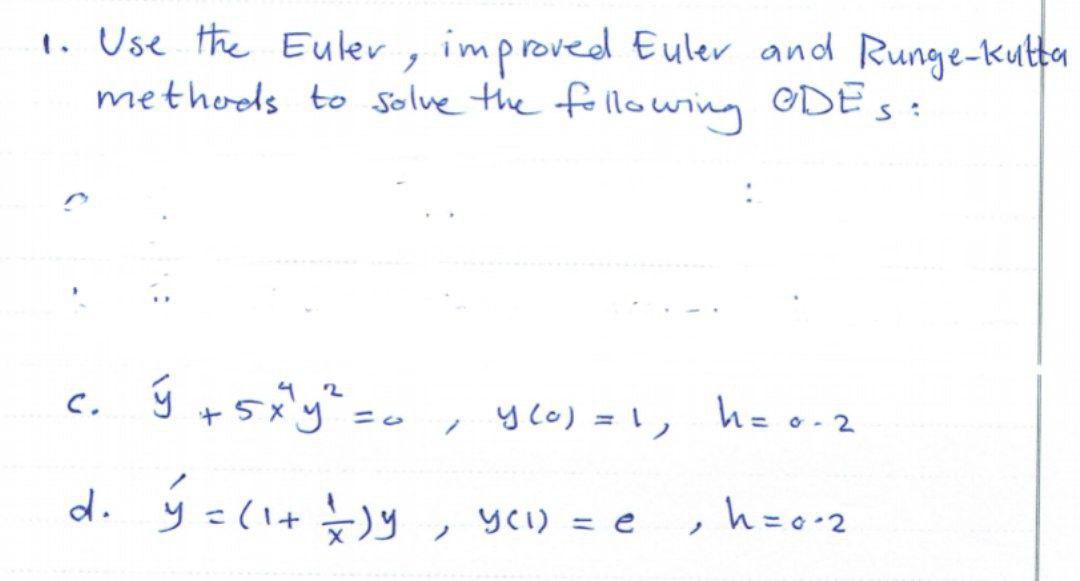 1. Use the Euler, improved Euler and Runge-Kutta
methods to solve the following ODEs:
c. ý + 5x⁴y² = 0, y(0) = 1, h = 0.2
d. ý = (1 + 1/x)y, y(1) = e, h = 0.2